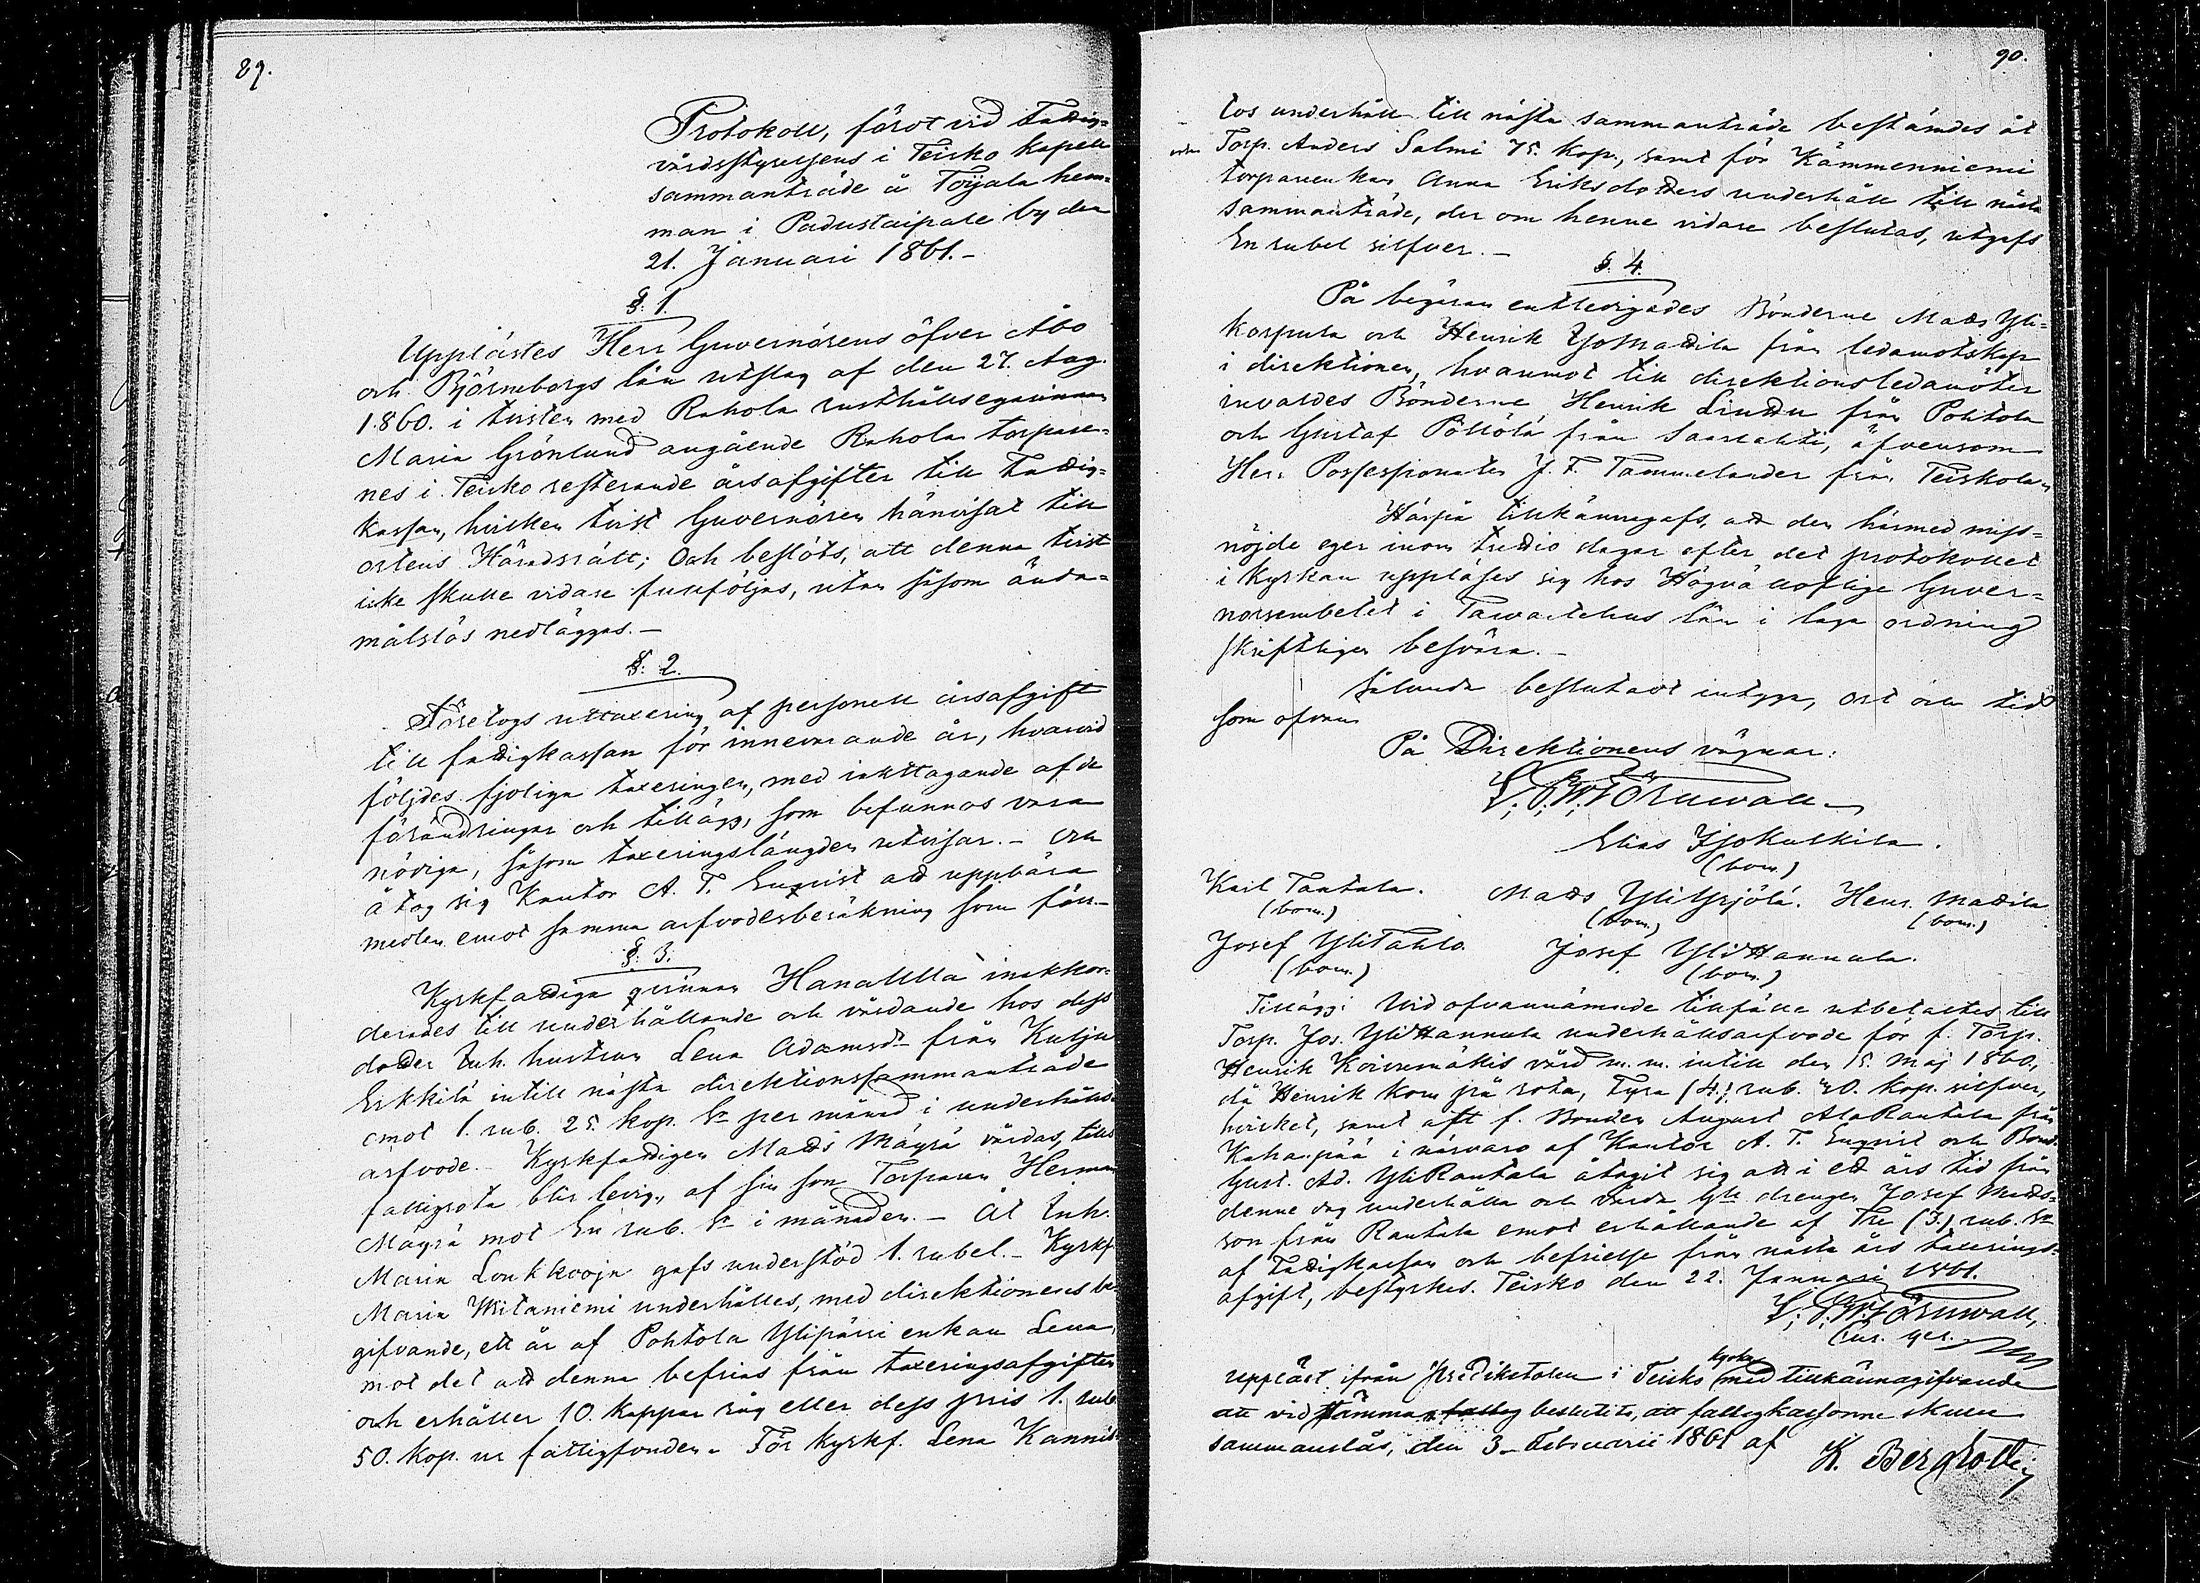 89.
Protokoll, fördt vid Fattig=
vårdsstyrelsens i Teisko Kapell
sammanträde å Toijala hem=
man i Padustaipale by den
21. Januari 1861.-
§. 1.
Upplästes Herr Guvernörens öfver Åbo
och Björneborgs län utslag af den 27. Aug.
1860. i tvisten med Rahola rusthållsegarinnan
Maria Grönlund angående Rahola torpare=
nes i Teisko resterande årsafgifter till Fattig=
kassan, hvilken tvist Guvernören hänvisat till
ortens Häradsrätt; Och beslöts, att denna tvist
icke skulle vidare fullföljas, utan såsom ända=
målslös nedläggas.-
§. 2.
Företogs uttaxering af personell årsafgift
till fattigkassan för innevarande år, hvarvid
följdes fjoliga taxeringen, med iakttagande af de
förändringar och tillägg, som befunnos vara
nödiga, såsom taxeringslängden utvisar.- Och
åtog sig Kantor A. T. Enqvist att uppbära
medlen emot samma arfvodesberäkning som förr.-
§. 3.
Kyrkfattiga qvinnan HanaUlla inakkor-
derades till underhållande och vårdande hos dess
dotter Inh. hustrun Lena Adamsdr från Kulju
Erkkilä intill nästa direktionssammanträde
emot 1. rub. 25. kop. Sr per månad i underhålls
arfvode.- Kyrkfattigen Matts Mäyrä vårdas, tills
fattigrota blir ledig, af sin son Torparen Herman
Mäyrä mot En rub. Sr i månaden.- Åt Inh.
Maria Loukkooja gafs understöd 1. rubel.- Kyrkf.
Maria Wiitaniemi underhålles, med direktionens be-
gifvande, ett år af Pohtola Ylipärri enkan Lena,
mot det att denna befrias från taxeringsafgiften
och erhåller 10. kappar råg eller dess pris 1. rub.
50. kop. ur fattigfonden.- För kyrkf. Lena Kannis-
90.
tos underhåll till nästa sammanträde bestämdes åt
Torp. Anders Salmi 75. kop., samt för Kämmenniemi
torpareenkan Anna Eriksdotters underhåll till nästa
sammanträde, der om henne vidare beslutas, utgafs
En rubel silfver.-
§. 4.
På begäran entledigades Bönderne Matts Yli=
korpula och Henrik YsoMattila från ledamotskap
i direktionen, hvaremot till direktionsledamöter
invaldes Bönderne Henrik Linddu från Pohtola
och Gustaf Pöllölä från Saarlahti, äfvensom
Herr Possessionaten J. F. Tammelander från Teiskola.
Härpå tillkännagafs, att den härmed miss=
nöjde eger inom trettio dagar efter det protokollet
i kyrkan uppläses sig hos Högvällofliga Guver=
norsembetet i Tawastehus län i laga ordning
skriftligen besvära.-
Sålunda beslutadt intyga, ort och tid
som ofvan
På Direktionens vägnar:
Elias Ysokulkila.
(bom.)
Karl Tantala.
(bom.)
Matts YliYrjölä.
(bom.)
Henr. Mattila
(bom.)
Josef YliTahlo.
(bom.)
Josef YliHannula.
(bom.)
Tillägg: Vid ofvannämnde tillfälle utbetaltes till
Torp. Jos. YliHannula underhållsarfvode för f. Torp.
Henrik Koivumäkis vård m. m. intill den 15. Maj 1860.,
då Henrik kom på rota, Fyra (4.) rub. 40. kop. silfver,
hvilket, samt att f. Bonden August AlaRantala från
Kahanpää i närvaro af Kantor A. T. Enqvist och Bond.
Gust. Ad. YliRantala åtagit sig att i ett års tid från
denne dag underhålla och vårda Gle drengen Josef Matts=
son från Rantala emot erhållande af Tre (3.) rub. Sr
af Fattigkassan och befrielse från nästa års taxerings=
afgift, bestyrkes. Teisko den 22. Januari 1861.
Uppläst ifrån Predikstolen i Teisko kyrka med tillkännagifvande
att vid stämman beslutits, att fattigkassorne skulle
sammanslås, den 3. Februarii 1861 af
K. Bergroth